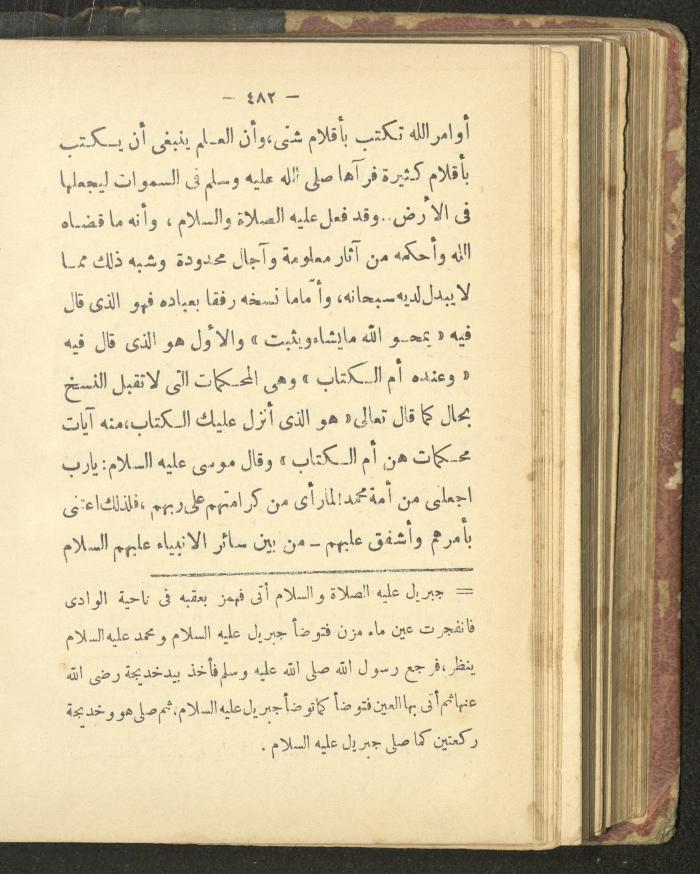 — ٤٨٢ —
أوامر الله تكتب بأقلام شتى، وأن العلم ينبغى أن يكتب
بأقلام كثيرة فرآها صلى الله عليه وسلم فى السموات ليجعلها
فى الأرض.. وقد فعل عليه الصلاة والسلام ، وأنه ما قضاه
الله وأحكمه من آثار معلومة وآجال محدودة وشبه ذلك مما
لا يبدل لديه سبحانه، وأما ما نسخه رفقا بعباده فهو الذى قال
فيه « يمحو الله ما يشاء ويثبت » والأول هو الذى قال فيه
« وعنده أم الكتاب » وهى المحكمات التى لا تقبل النسخ
بحال كما قال تعالى « هو الذى أنزل عليك الكتاب، منه آيات
محكمات هن أم الكتاب » وقال موسى عليه السلام: يارب
اجعلنى من أمة محمد! لما رأى من كرامتهم على ربهم ، فلذلك اعتنى
بأمرهم وأشفق عليهم — من بين سائر الانبياء عليهم السلام
= جبريل عليه الصلاة والسلام أتى فهمز بعقبه فى ناحية الوادى
فانفجرت عين ماء مزن فتوضأ جبريل عليه السلام ومحمد عليه السلام
ينظر، فرجع رسول الله صلى الله عليه وسلم فأخذ بيد خديجة رضى الله
عنها ثم أتى بها العين فتوضأ كما توضأ جبريل عليه السلام، ثم صلى هو وخديجة
ركعتين كما صلى جبريل عليه السلام .